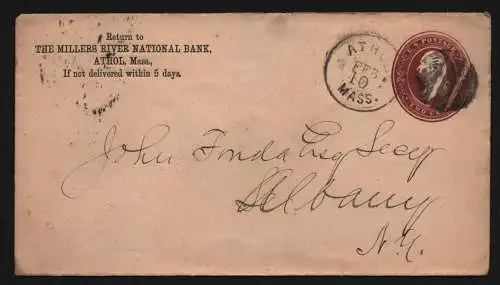 Return to
THE MILLERS RIVER NATIONAL BANK,
ATHOL, Mass.,
If not delivered within 5 days.
ATHOL
FEB
10
MASS.
U.S. POSTAGE
John Fonda Esq Secy
Albany
N.Y.